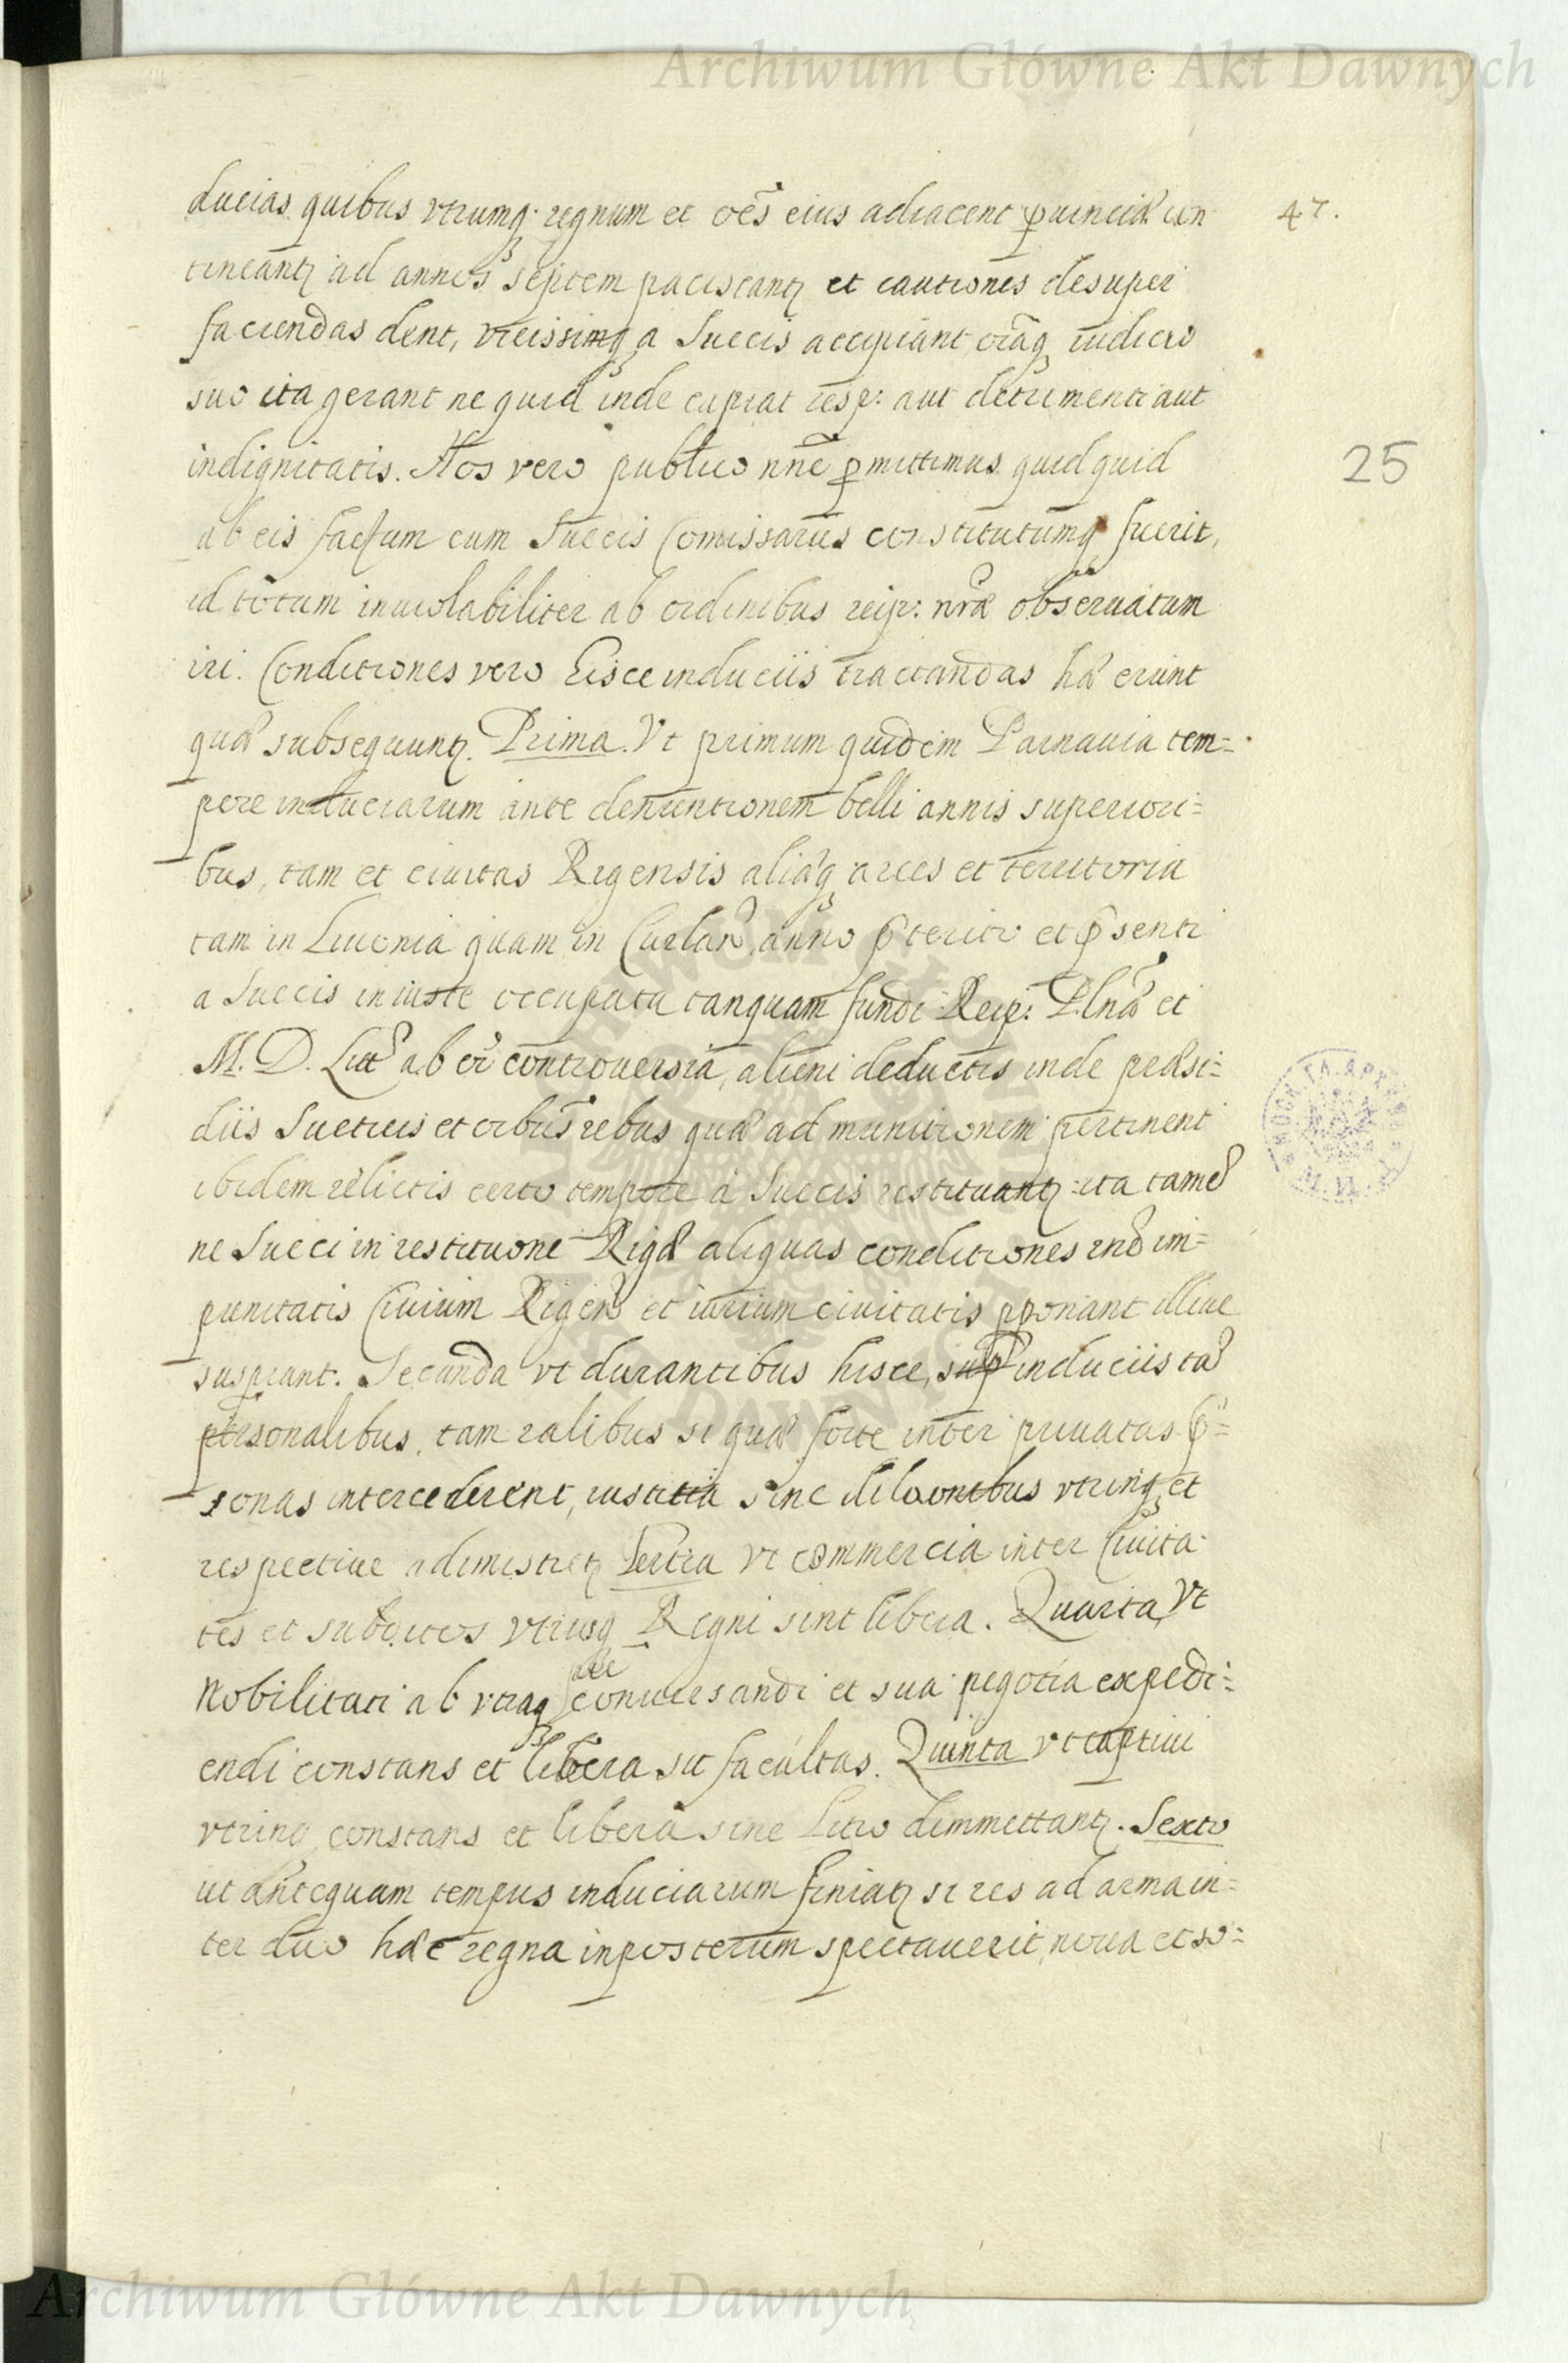 Archiwum Główne Akt Dawnych
47.
ducias quibus vtrumq; regnum et oēs eius adiacent ꝓuinciæ con
tineantʒ ad annos septem paciscantʒ et cautiones desuper
faciendas dent, vicissimq; a Suecis accipiant oiāq; iudicio
suo ita gerant ne quid inde capiat resp: aut detrimenti aut
indignitatis. Nos vero publico nñe ꝓmittimus quidquid
25
ab eis factum cum Suecis Comissariis constitutumq; fuerit,
id totum inuiolabiliter ab ordinibus reip: nræ obseruatum
iri. Conditiones vero hisce induciis tractandas hæ erunt
quæ subsequuntʒ. Prima. Vt primum quidem Parnauia tem=
pore induciarum ante denuntionem belli annis superiori=
bus, tam et ciuitas Rigensis aliæq; arces et territoria
tam in Liuonia quam in Curlan̄, anno p̄terito et p̄senti
a Suecis iniuste occupata tanquam fundi Reip: Plnæ et
M. D. Litt ab oi controuersia, alieni deductis inde præsi=
diis Sueticis et oibus rebus quæ ad munitionem pertinent
ibidem relictis certo tempore a Suecis restituantʒ: ita tamē
ne Sueci in restituone Rigæ aliquas conditiones rnõ im=
punitatis Ciuium Rigen̄ et iurium ciuitatis pponant illiue
suspiant. Secunda vt durantibus hisce, sup induciis tā
personalibus, tam ralibus si quæ forte inter priuatas p=
sonas intercederent, iustitia sine dilaonibus vtrinq; et
respectiue adimistretʒ Tertia vt commercia inter Ciuita
tes et subditos vtriusq; Regni sint libera. Quarta, Vt
Nobilitati ab vtraq; conuersandi et sua negotia expedi=
endi constans et libera sit facultas. Quinta vt captiui
vtrinq; constans et libera sine Litro dimmittantʒ. Sexto
ut antequam tempus induciarum finiatʒ si res ad arma in=
ter duo hæc regna inposterum spectauerit, noua et so=
Archiwum Główne Akt Dawnych